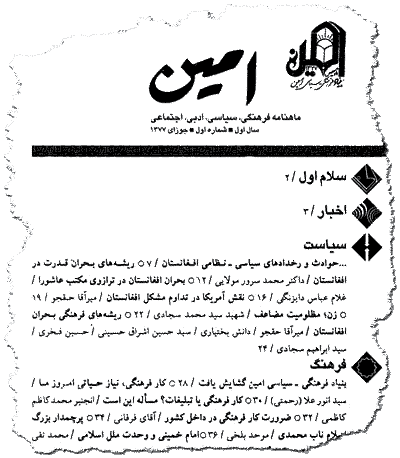 امین
ماهنامه فرهنگی، سیاسی، ادبی، اجتماعی
سال اول ■ شماره اول ■ جوزای ۱۳۷۷
سلام اول / ۲
اخبار / ۳
سیاست
...حوادث و رخدادهای سیاسی ـ نظامی افغانستان / ۷ ○ ریشه‌های بحران قدرت در
افغانستان / داکتر محمد سرور مولایی / ۱۲ ○ بحران افغانستان در ترازوی مکتب عاشورا /
غلام عباس دایزنگی / ۱۶ ○ نقش آمریکا در تداوم مشکل افغانستان / میرآقا حقجو / ۱۹
○ زن؛ مظلومیت مضاعف / شهید سید محمد سجادی / ۲۲ ○ ریشه‌های فرهنگی بحران
افغانستان / میرآقا حقجو / دانش بختیاری / سید حسین اشراق حسینی / حسین فخری /
سید ابراهیم سجادی / ۲۴
فرهنگ
بنیاد فرهنگی ـ سیاسی امین گشایش یافت / ۲۸ ○ کار فرهنگی، نیاز حیاتی امروز ما /
سید انور علا (رحمتی) / ۳۰ ○ کار فرهنگی یا تبلیغات؟ مسأله این است / انجنیر محمد کاظم
کاظمی / ۳۲ ○ ضرورت کار فرهنگی در داخل کشور / آقای فرقانی / ۳۴ ○ پرچمدار بزرگ
اسلام ناب محمدی / موحد بلخی / ۳۶ ○ امام خمینی و وحدت ملل اسلامی / محمد تقی